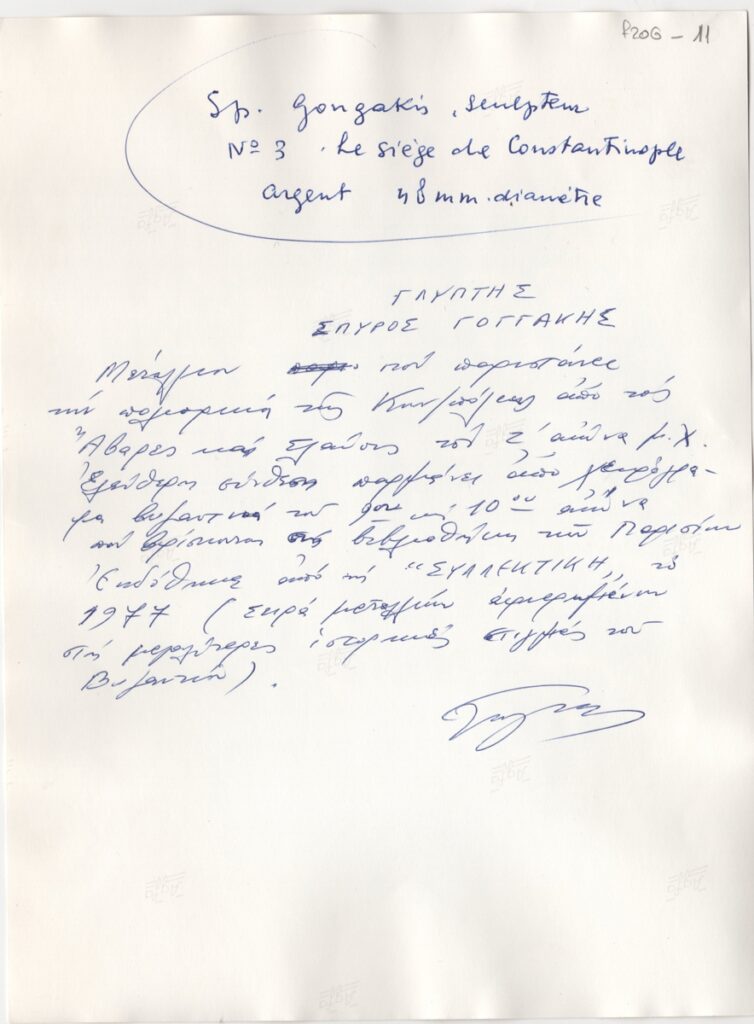 R20G - 11
Sp. Gongakis, sculpteur
Nº 3 . Le siège de Constantinople
argent 48 mm. diamétre
ΓΛΥΠΤΗΣ
ΣΠΥΡΟΣ ΓΟΓΓΑΚΗΣ
Μετάλλιον που παριστάνει
την πολιορκία της Κων/πόλεως από τούς
Άβαρες και Σλαύους του Ζ' αιώνα μ.Χ.
Ελεύθερη σύνθεση παρμένει από χειρόγρα-
φα βυζαντινά του 9ου και 10ου αιώνα
που βρίσκονται στη βιβλιοθήκη των Παρισίων
Εκδόθηκε από τη "ΣΥΛΛΕΚΤΙΚΗ, το
1977 (σειρά μεταλλίων αφιερωμένων
στις μεγαλύτερες ιστορικές στιγμές του
Βυζαντίου).